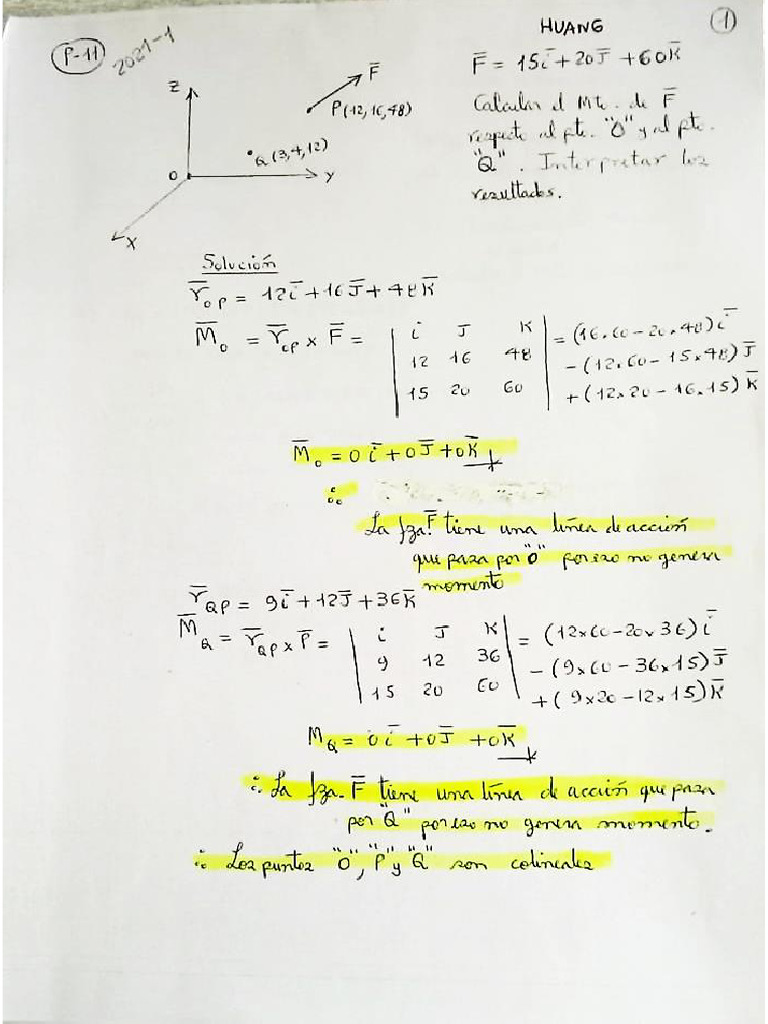 P-11
2021-1
HUANG
1
F̄ = 15ī+20J̄+60K̄
Calcular el Mto. de F̄
respecto al pto. "O" y al pto.
"Q". Interpretar los
resultados.
Z
F̄
P(12,16,48)
Q(3,4,12)
O
Y
X
Solución
r̄OP = 12ī+16J̄+48K̄
M̄o = r̄op × F̄ = | i J K | = (16.60-20.48)ī
12 16 48 -(12.60-15×48)J̄
15 20 60 +(12×20-16.15)K̄
M̄o = 0ī+0J̄+0K̄
∴
La fza. F̄ tiene una línea de acción
que paza por "O" por ezo no genera
momento
r̄QP = 9ī+12J̄+36K̄
M̄Q = r̄QP × F̄ = | i J K | = (12×60-20×36)ī
9 12 36 -(9×60-36×15)J̄
15 20 60 +(9×20-12×15)K̄
MQ = 0ī+0J̄+0K̄
∴ La fza. F̄ tiene una línea de acción que paza
por "Q" por ezo no genera momento.
∴ Loz puntoz "O", "P" y "Q" son colinealez